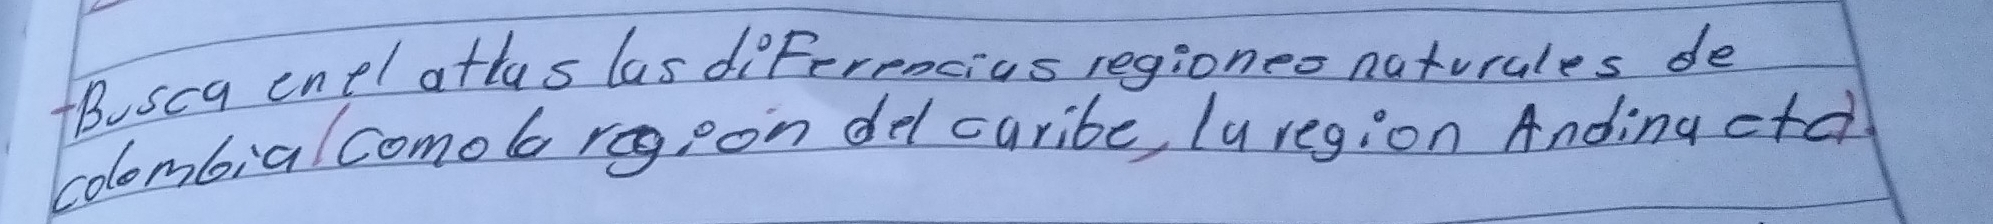 -Busca en el atlas las diferencias regiones naturales de
colombia (como la región del caribe, la region Andina ctd)